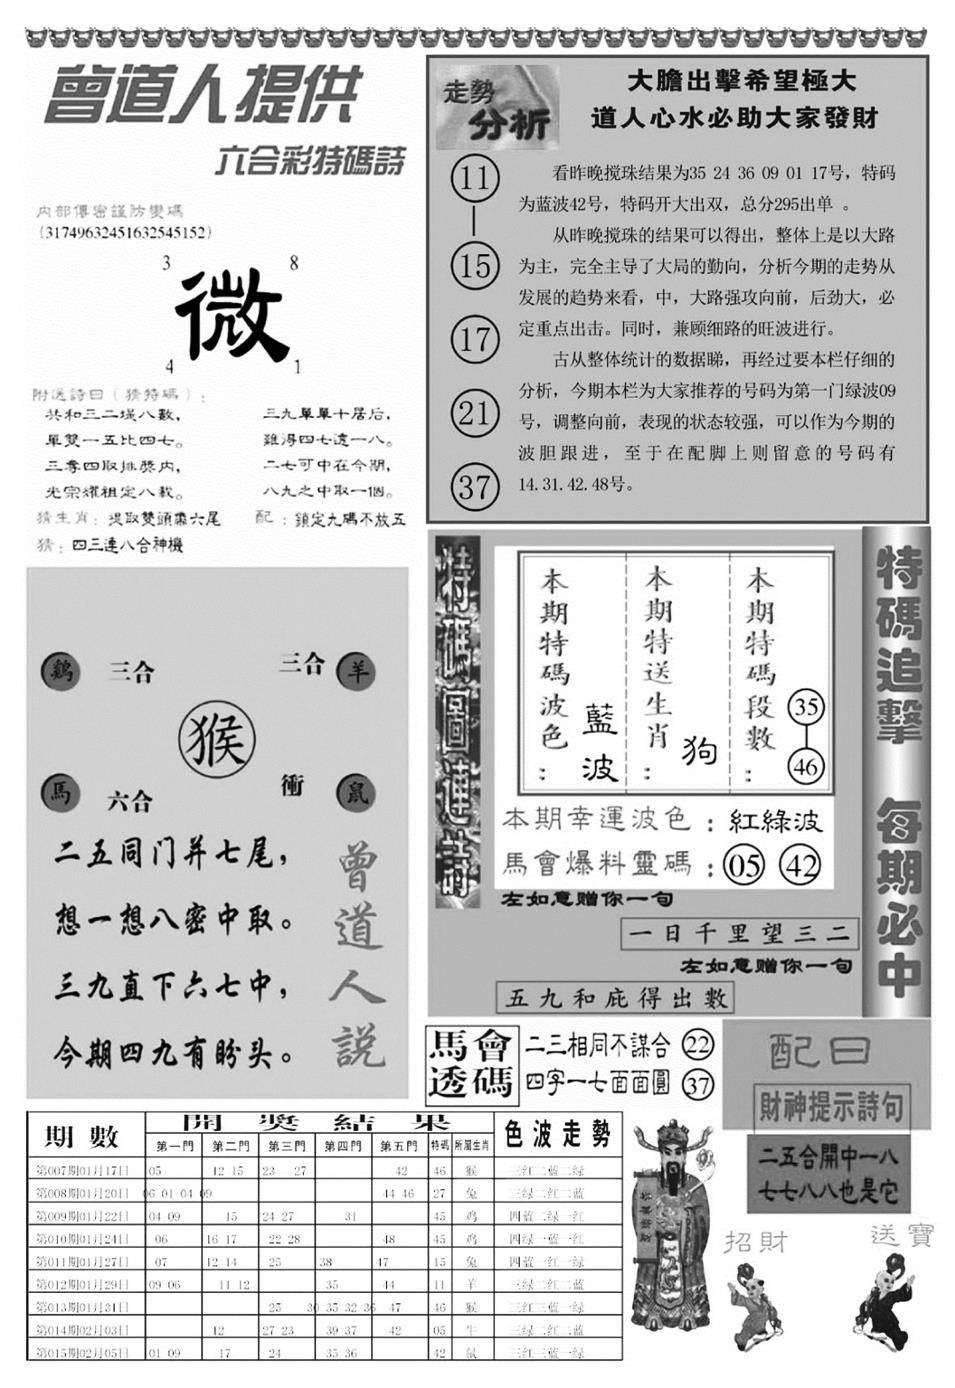 曾道人提供
六合彩特碼詩
内部傳密謹防變碼
(31749632451632545152)
3 8
微
4 1
附送詩曰(猜特碼):
共和三二堤八數,
單雙一五比四七。
三零四取排漿内,
光宗耀祖定八載。
三九單單十居后,
難得四七遠一八。
二七可中在今期,
八九之中取一個。
猜生肖:提取雙頭靠六尾
配:鎖定九碼不放五
猜:四三連八合神機
走勢
分析
大膽出擊希望極大
道人心水必助大家發財
11
15
17
21
37
看昨晚搅珠结果为35 24 36 09 01 17号,特码
为蓝波42号,特码开大出双,总分295出单 。
从昨晚搅珠的结果可以得出,整体上是以大路
为主,完全主导了大局的勤向,分析今期的走势从
发展的趋势来看,中,大路强攻向前,后劲大,必
定重点出击。同时,兼顾细路的旺波进行。
古从整体统计的数据睇,再经过要本栏仔细的
分析,今期本栏为大家推荐的号码为第一门绿波09
号,调整向前,表现的状态较强,可以作为今期的
波胆跟进,至于在配脚上则留意的号码有
14.31.42.48号。
鷄 三合
三合 羊
猴
馬 六合
衝 鼠
二五同门并七尾,
想一想八密中取。
三九直下六七中,
今期四九有盼头。
曾道人説
特碼圖達詩
本期特碼波色:
藍波
本期特送生肖:
狗
本期特碼段數:
35
46
本期幸運波色:紅綠波
馬會爆料靈碼:05 42
左如意赠你一句
一日千里望三二
左如意赠你一句
五九和庇得出數
特碼追擊 每期必中
馬會
透碼
二三相同不謀合 22
四字一七面面圓 37
配曰
財神提示詩句
二五合開中一八
七七八八也是它
招財
送寶
期數 開獎結果 色波走勢
第一門 第二門 第三門 第四門 第五門 特碼 所屬生肖
第007期01月17日 05 12 15 23 27 42 46 猴 三红二蓝二绿
第008期01月20日 06 01 04 09 44 46 27 兔 三绿二红二蓝
第009期01月22日 04 09 15 24 27 31 45 鸡 四蓝二绿一红
第010期01月24日 06 16 17 22 28 48 45 鸡 四绿一蓝一红
第011期01月27日 07 12 14 25 38 47 15 兔 四蓝一红一绿
第012期01月29日 09 06 11 12 35 44 11 羊 三绿二红二蓝
第013期01月31日 25 30 35 32 36 47 46 猴 三红三蓝一绿
第014期02月03日 12 27 23 39 37 42 05 牛 三绿二红二蓝
第015期02月05日 01 09 17 24 35 36 42 鼠 三红三蓝一绿